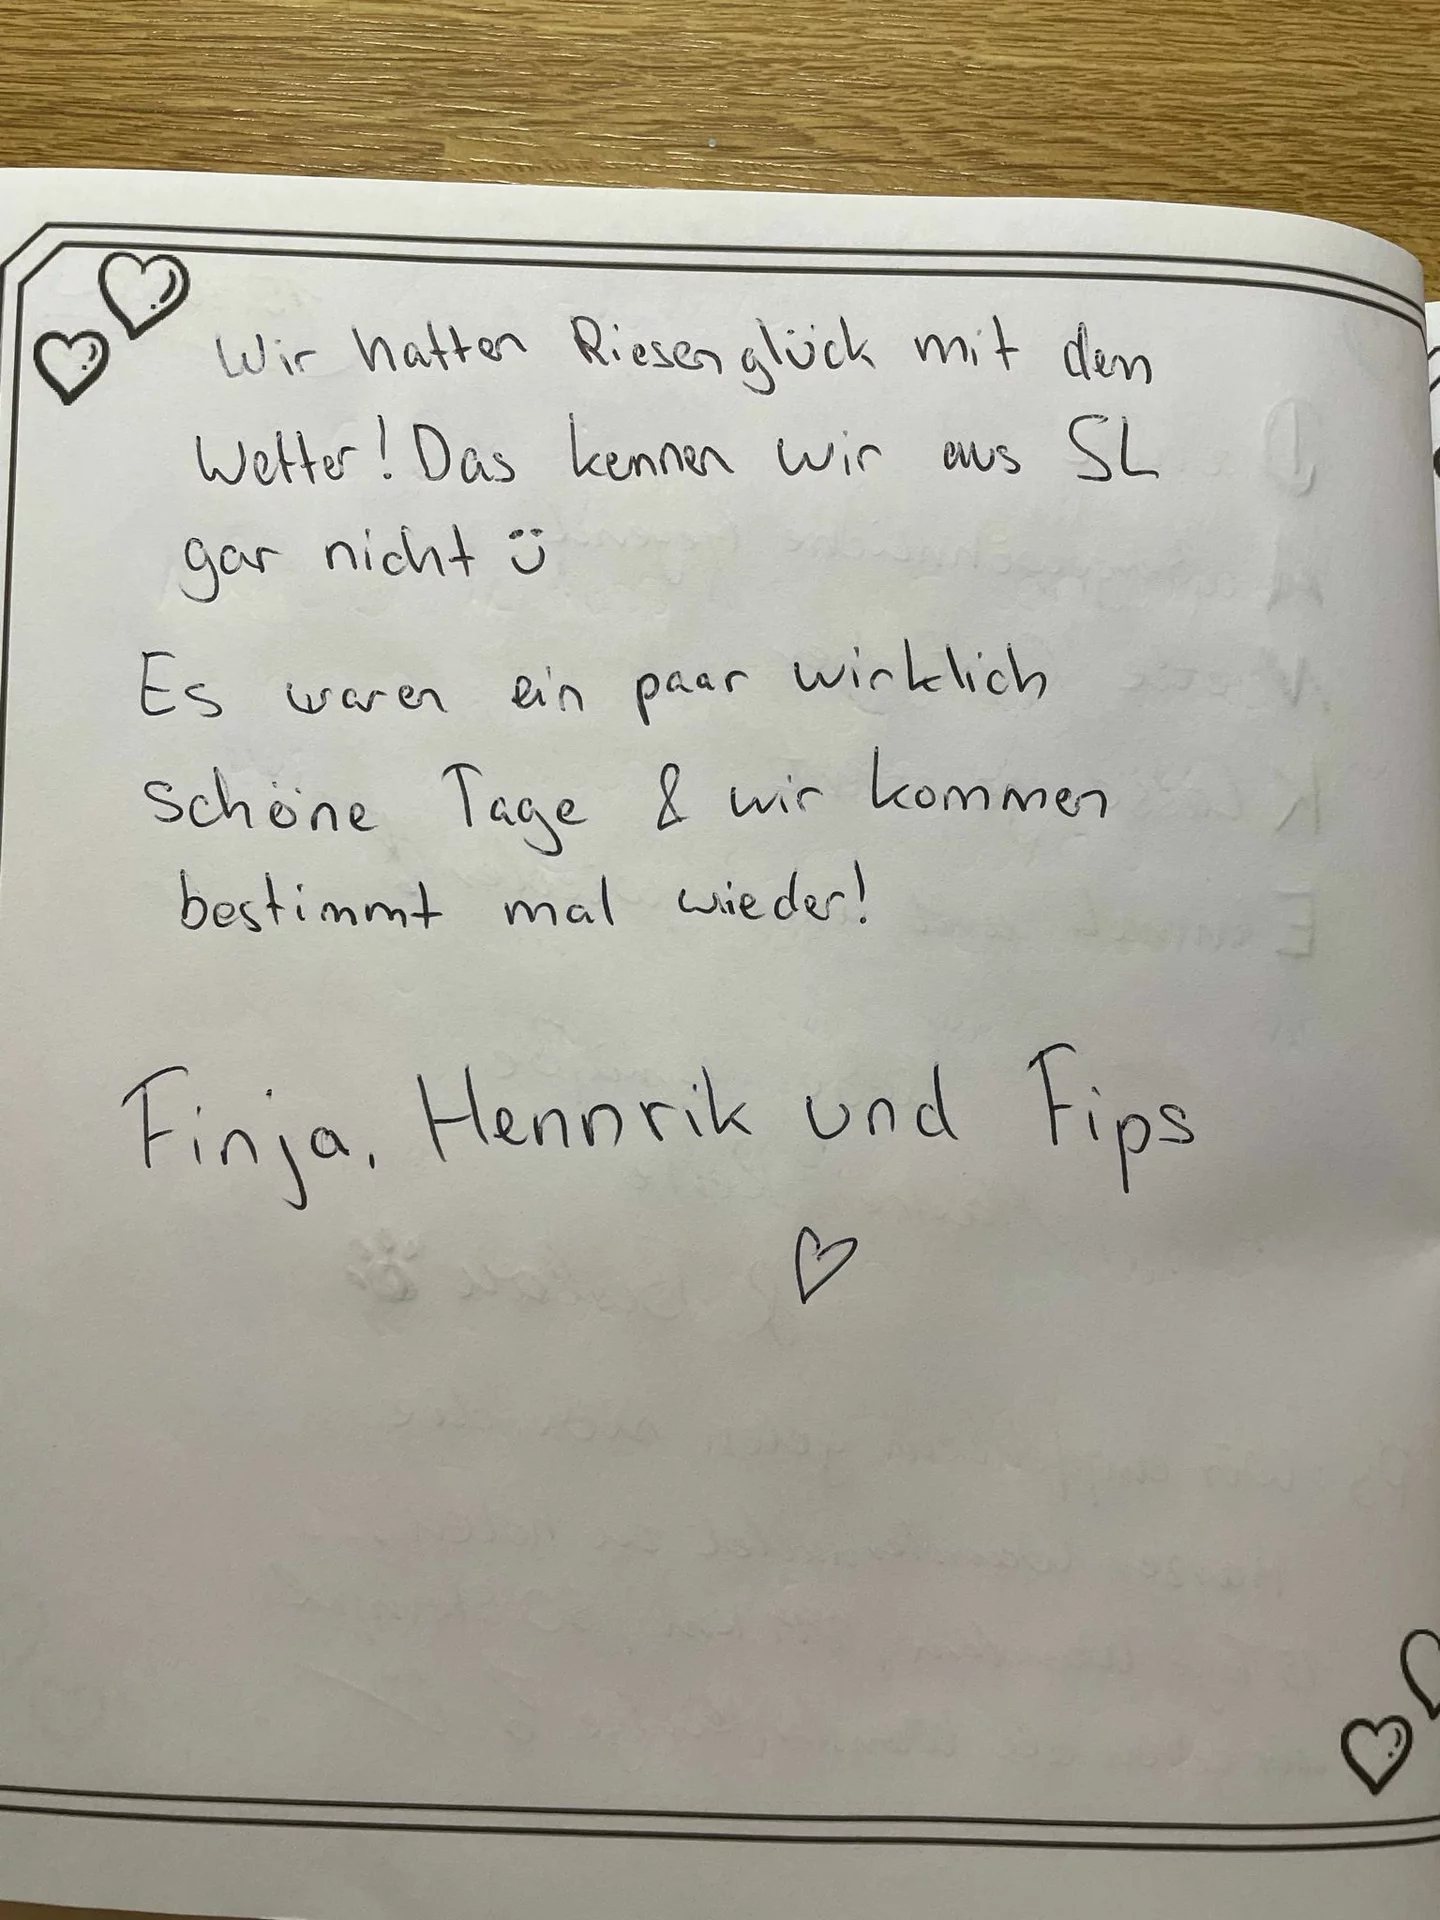 Wir hatten Riesenglück mit dem
Wetter! Das kennen wir aus SL
gar nicht ü
Es waren ein paar wirklich
schöne Tage & wir kommen
bestimmt mal wieder!
Finja, Hennrik und Fips